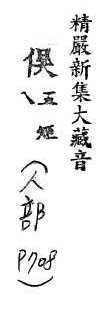 精嚴新集大藏音
俁
五矩
乀
(人部
P708)